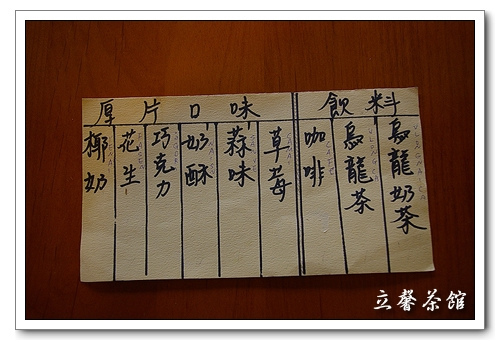 厚片口味
飲料
椰奶
花生
巧克力
奶酥
蒜味
草莓
咖啡
烏龍茶
烏龍奶茶
立馨茶館